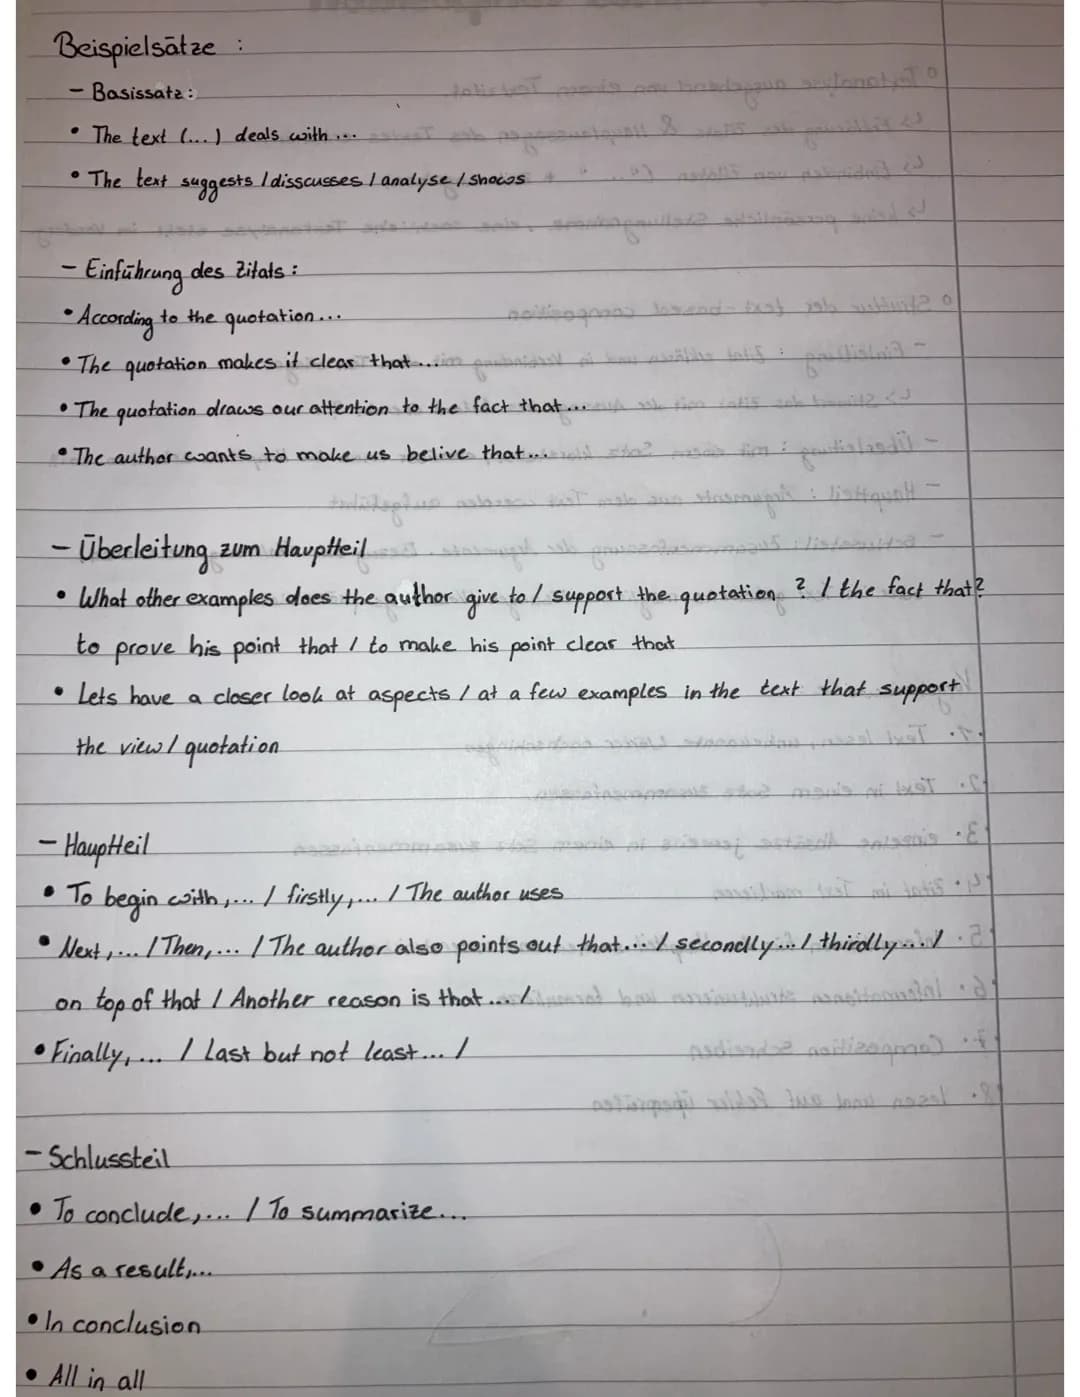 Beispielsätze :
- Basissatz:
• The text (...) deals with ...
• The text suggests / disscusses / analyse / shows
- Einführung des Zitats :
• According to the quotation...
• The quotation makes it clear that ...
• The quotation draws our attention to the fact that ...
• The author wants to make us belive that...
- Überleitung zum Hauptteil
• What other examples does the author give to / support the quotation ? / the fact that?
to prove his point that / to make his point clear that
• Lets have a closer look at aspects / at a few examples in the text that support
the view / quotation
- Hauptteil
• To begin with,... / firstly,... / The author uses
• Next,... / Then,... / The author also points out that... / secondly... / thirdly... /
on top of that / Another reason is that ... /
• Finally, ... / Last but not least... /
- Schlussteil
• To conclude,... / To summarize...
• As a result,...
• In conclusion
• All in all